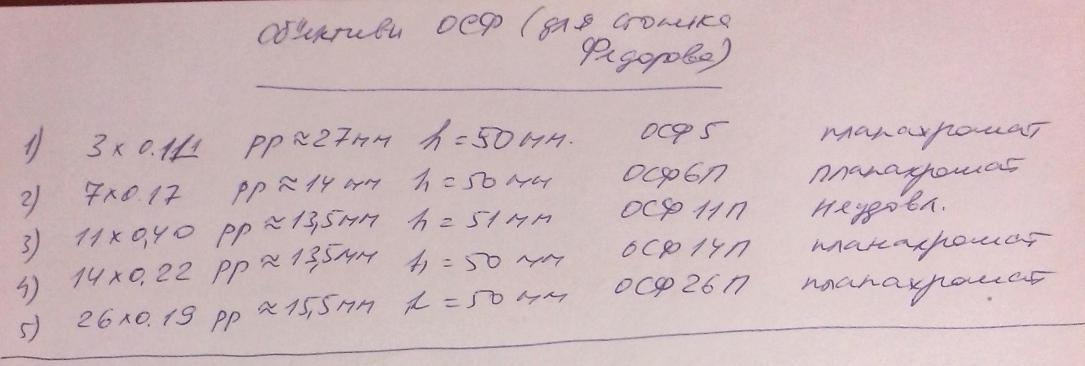 Об'єктиви ОСФ (для столика
Федорова)
1) 3 x 0.11 рр ≈ 27 мм h = 50 мм. ОСФ 5 планахромат
2) 7 x 0.17 рр ≈ 14 мм h = 50 мм ОСФ 6П планахромат
3) 11 x 0,40 рр ≈ 13,5 мм h = 51 мм ОСФ 11П неудовл.
4) 14 x 0,22 рр ≈ 13,5 мм h = 50 мм ОСФ 14П планахромат
5) 26 x 0.19 рр ≈ 15,5 мм h = 50 мм ОСФ 26П планахромат